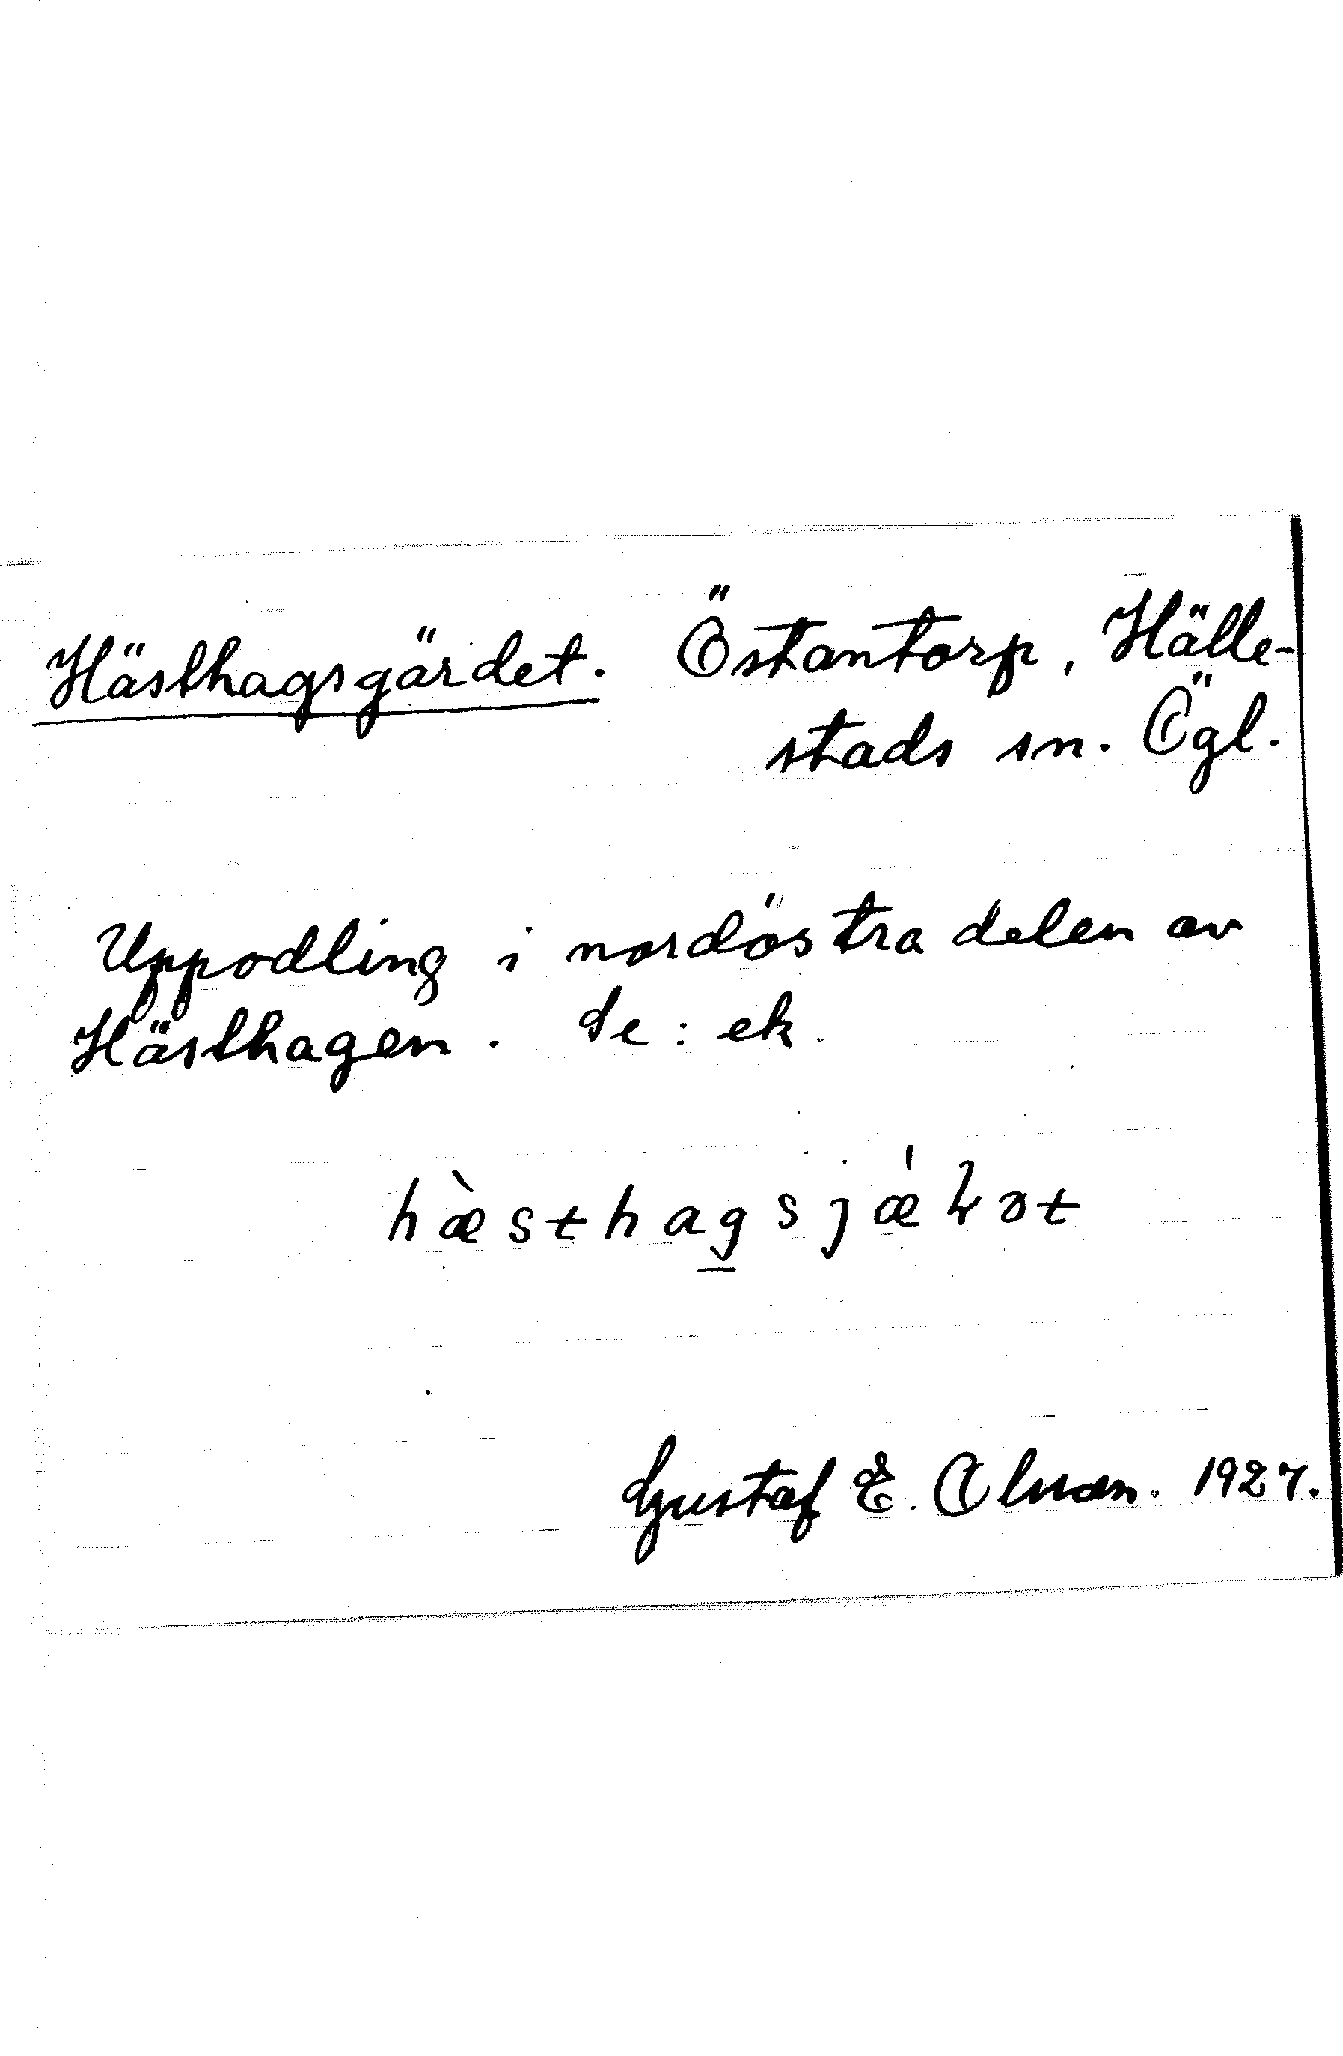 Hästhagsgärdet. Östantorp, Hälle-
stads sn. Ögl.
Uppodling i nordöstra delen av
Hästhagen. Se: ek.
Gustaf E. Olsson. 1927.